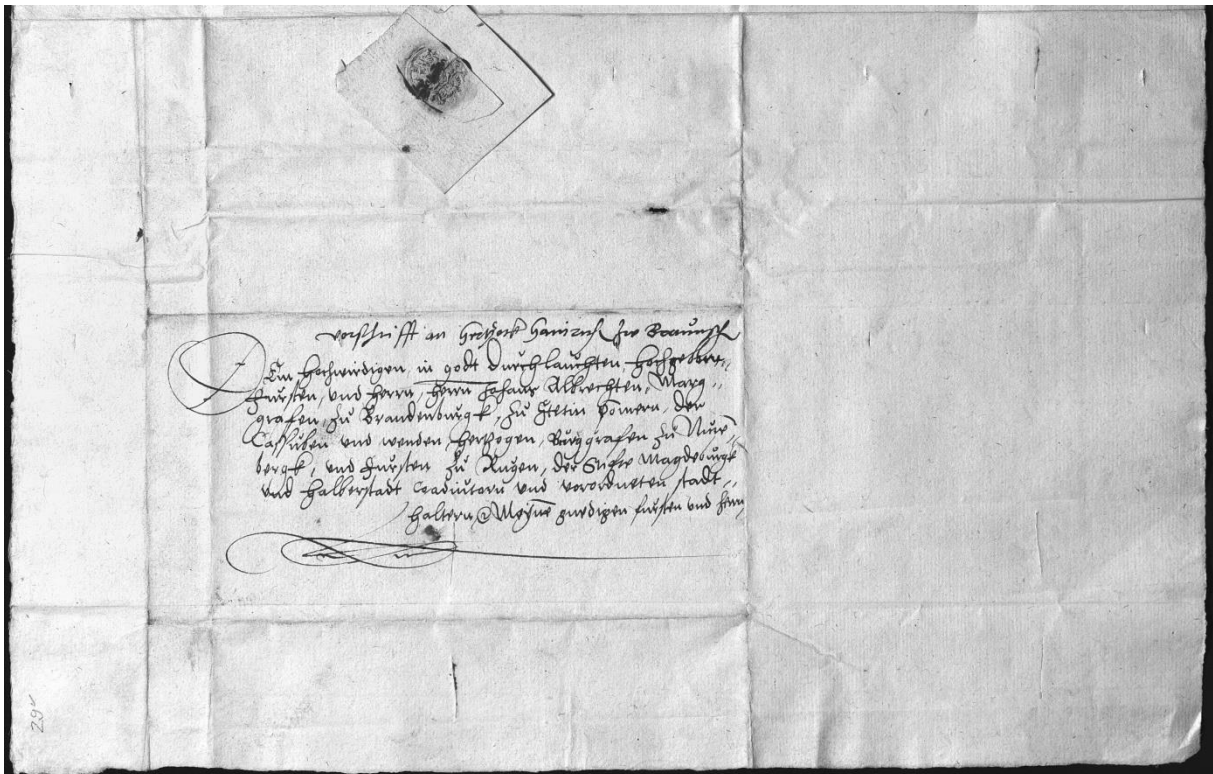 vorschrifft an Hertzock Hainrich zw Braunsch
Dem Hochwirdigen, in godt Durchlauchten, Hochgebore„
Fursten, und Herrn, Herrn Johans Albrechten, Marg„
grafen, zu Brandenburgk, zu Stetin Pomern, der
Cassuben und wenden Hertzogen, Burggrafen zu Nurē„
bergk, und Fursten zu Rugen, der Stiffte Magdeburgk
und Halberstadt Coadiutorn und vorordneten stadt„
haltern Meynē gnedigen fursten und Hern
29v